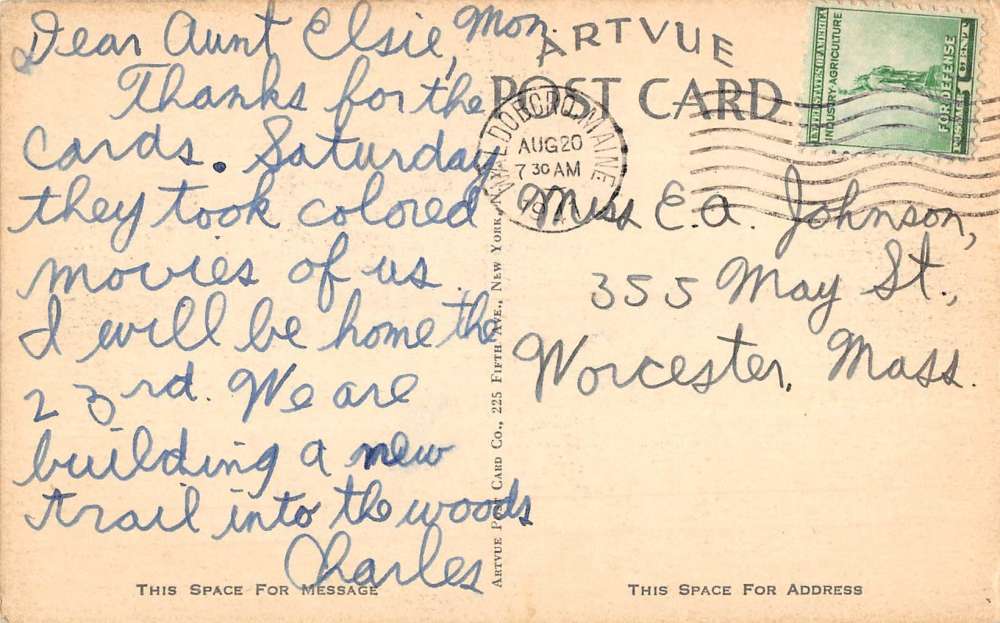 Dear Aunt Elsie, Mon.
Thanks for the
cards. Saturday
they took colored
movies of us.
I will be home the
23rd. We are
building a new
trail into the woods
Charles
THIS SPACE FOR MESSAGE
ARTVUE POST CARD CO., 225 FIFTH AVE., NEW YORK, N.Y.
ARTVUE
POST CARD
WALDOBORO, MAINE
AUG 20
7 30 AM
UNITED STATES OF AMERICA
INDUSTRY AGRICULTURE
FOR DEFENSE
1 CENT
POSTAGE
Miss E.A. Johnson,
355 May St.,
Worcester, Mass.
THIS SPACE FOR ADDRESS